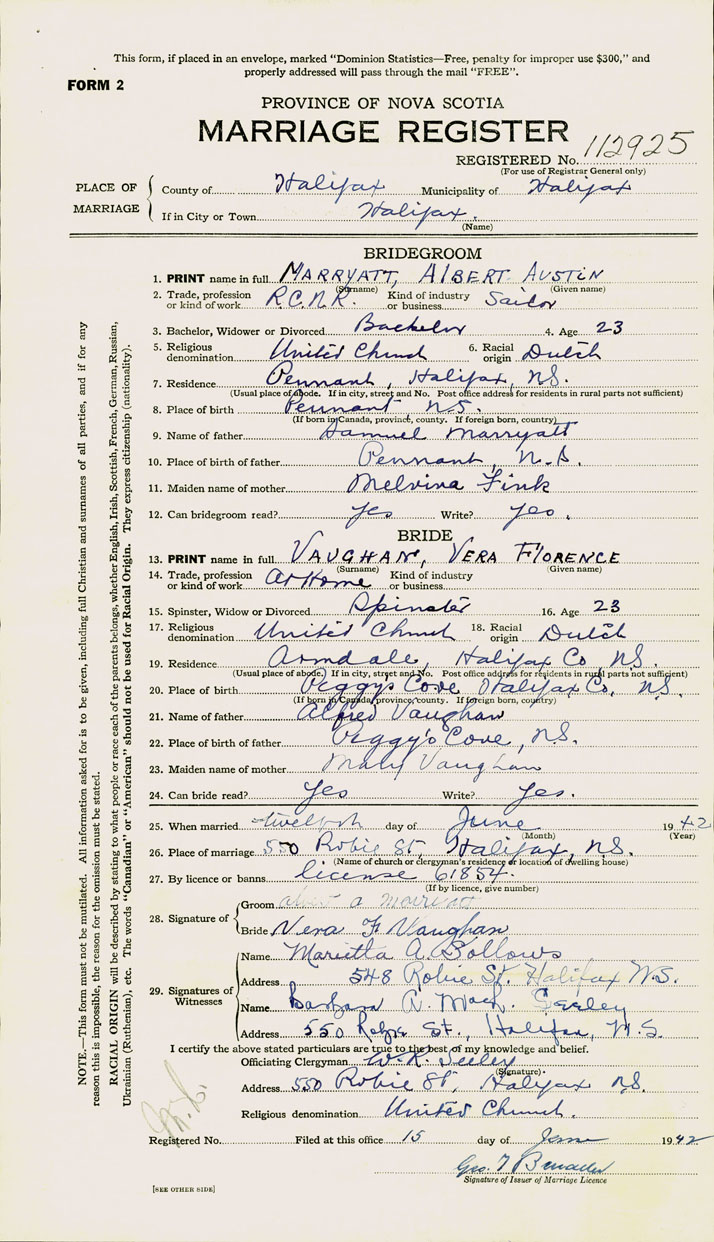 This form, if placed in an envelope, marked "Dominion Statistics—Free, penalty for improper use $300," and
properly addressed will pass through the mail "FREE".
FORM 2
PROVINCE OF NOVA SCOTIA
MARRIAGE REGISTER
REGISTERED No. 112925
(For use of Registrar General only)
PLACE OF MARRIAGE
County of Halifax Municipality of Halifax
If in City or Town Halifax.
(Name)
BRIDEGROOM
1. PRINT name in full MARRYATT, ALBERT AUSTIN
(Surname) (Given name)
2. Trade, profession or kind of work R.C.N.R. Kind of industry or business Sailor
3. Bachelor, Widower or Divorced Bachelor 4. Age 23
5. Religious denomination United Church 6. Racial origin Dutch
7. Residence Pennant, Halifax, N.S.
(Usual place of abode. If in city, street and No. Post office address for residents in rural parts not sufficient)
8. Place of birth Pennant N.S.
(If born in Canada, province, county. If foreign born, country)
9. Name of father Samuel Marryatt
10. Place of birth of father Pennant, N.S.
11. Maiden name of mother Melvina Fink
12. Can bridegroom read? yes Write? yes.
BRIDE
13. PRINT name in full VAUGHAN, VERA FLORENCE
(Surname) (Given name)
14. Trade, profession or kind of work At Home Kind of industry or business
15. Spinster, Widow or Divorced Spinster 16. Age 23
17. Religious denomination United Church 18. Racial origin Dutch
19. Residence Armdale, Halifax Co N.S.
(Usual place of abode. If in city, street and No. Post office address for residents in rural parts not sufficient)
20. Place of birth Peggys Cove Halifax Co, N.S.
(If born in Canada, province, county. If foreign born, country)
21. Name of father Alfred Vaughan
22. Place of birth of father Peggy's Cove, N.S.
23. Maiden name of mother Mary Vaughan
24. Can bride read? Yes Write? Yes.
25. When married twelfth day of June 1942
(Month) (Year)
26. Place of marriage 550 Robie St, Halifax, N.S.
(Name of church or clergyman's residence or location of dwelling house)
27. By licence or banns license 61854.
(If by licence, give number)
28. Signature of
Groom
Bride Vera F Vaughan
29. Signatures of Witnesses
Name Marietta A. Bollows
Address 548 Robie St. Halifax N.S.
Name Barbara A. Seeley
Address 550 Robie St., Halifax, N.S.
I certify the above stated particulars are true to the best of my knowledge and belief.
Officiating Clergyman W. R. Seeley
(Signature)
Address 550 Robie St, Halifax N.S.
Religious denomination United Church.
Registered No. Filed at this office 15 day of June 1942
Signature of Issuer of Marriage Licence
[SEE OTHER SIDE]
NOTE.—This form must not be mutilated. All information asked for is to be given, including full Christian and surnames of all parties, and if for any
reason this is impossible, the reason for the omission must be stated.
RACIAL ORIGIN will be described by stating to what people or race each of the parents belongs, whether English, Irish, Scottish, French, German, Russian,
Ukrainian (Ruthenian), etc. The words "Canadian" or "American" should not be used for Racial Origin. They express citizenship (nationality).